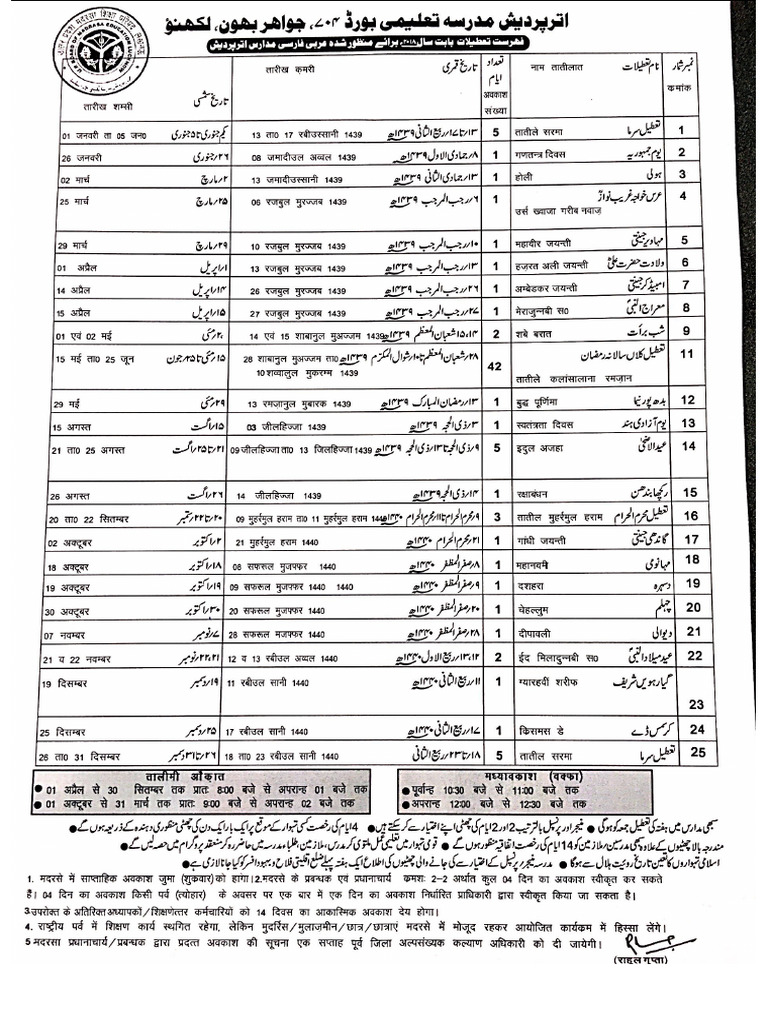 اترپردیش مدرسہ تعلیمی بورڈ ۷۰۴، جواہر بھون، لکھنؤ
فہرست تعطیلات بابت سال ۲۰۱۸ء برائے منظور شدہ عربی فارسی مدارس اترپردیش
तारीख शम्सी تاریخ شمسی तारीख कमरी تاریخ قمری تعداد ایام अवकाश संख्या नाम तातीलात نام تعطیلات نمبر شمار कमांक
01 जनवरी ता 05 जन0 یکم جنوری تا ۵ جنوری 13 ता 17 रबीउस्सानी 1439 ۱۳ تا ۱۷ ربیع الثانی ۱۴۳۹ھ 5 तातीले सरमा تعطیل سرما 1
26 जनवरी ۲۶ جنوری 08 जमादीउल अव्वल 1439 ۸ جمادی الاول ۱۴۳۹ھ 1 गणतन्त्र दिवस یوم جمہوریہ 2
02 मार्च ۲ مارچ 13 जमादीउस्सानी 1439 ۱۳ جمادی الثانی ۱۴۳۹ھ 1 होली ہولی 3
25 मार्च ۲۵ مارچ 06 रजबुल मुरज्जब 1439 ۶ رجب المرجب ۱۴۳۹ھ 1 उर्स ख्वाजा गरीब नवाज़ عرس خواجہ غریب نواز 4
29 मार्च ۲۹ مارچ 10 रजबुल मुरज्जब 1439 ۱۰ رجب المرجب ۱۴۳۹ھ 1 महावीर जयन्ती مہاویر جینتی 5
01 अप्रैल ۱ اپریل 13 रजबुल मुरज्जब 1439 ۱۳ رجب المرجب ۱۴۳۹ھ 1 हज़रत अली जयन्ती ولادت حضرت علی 6
14 अप्रैल ۱۴ اپریل 26 रजबुल मुरज्जब 1439 ۲۶ رجب المرجب ۱۴۳۹ھ 1 अम्बेडकर जयन्ती امبیڈکر جینتی 7
15 अप्रैल ۱۵ اپریل 27 रजबुल मुरज्जब 1439 ۲۷ رجب المرجب ۱۴۳۹ھ 1 मेराजुन्नबी स0 معراج النبی 8
01 एवं 02 मई ۲ مئی 14 एवं 15 शाबानुल मुअज्जम 1439 ۱۴، ۱۵ شعبان المعظم ۱۴۳۹ھ 2 शबे बरात شب برأت 9
15 मई ता0 25 जून ۱۵ مئی تا ۲۵ جون 28 शाबानुल मुअज्जम ता0 10 शव्वालुल मुकरम्म 1439 ۲۸ شعبان المعظم تا ۱۰ شوال المکرم ۱۴۳۹ھ 42 तातीले कलांसालाना रमज़ान تعطیل کلاں سالانہ رمضان 11
29 मई ۲۹ مئی 13 रमज़ानुल मुबारक 1439 ۱۳ رمضان المبارک ۱۴۳۹ھ 1 बुद्ध पूर्णिमा بدھ پورنیما 12
15 अगस्त ۱۵ اگست 03 जीलहिज्जा 1439 ۳ ذی الحجہ ۱۴۳۹ھ 1 स्वतंत्रता दिवस یوم آزادی ہند 13
21 ता0 25 अगस्त ۲۱ تا ۲۵ اگست 09 जीलहिज्जा ता0 13 जिलहिज्जा 1439 ۹ ذی الحجہ تا ۱۳ ذی الحجہ ۱۴۳۹ھ 5 इदुल अजहा عید الاضحیٰ 14
26 अगस्त ۲۶ اگست 14 जीलहिज्जा 1439 ۱۴ ذی الحجہ ۱۴۳۹ھ 1 रक्षाबंधन رکچھا بندھن 15
20 ता0 22 सितम्बर ۲۰ تا ۲۲ ستمبر 09 मुहर्रमुल हराम ता0 11 मुहर्रमुल हराम 1440 ۹ محرم الحرام تا ۱۱ محرم الحرام ۱۴۴۰ھ 3 तातील मुहर्रमुल हराम تعطیل محرم الحرام 16
02 अक्टूबर ۲ اکتوبر 21 मुहर्रमुल हराम 1440 ۲۱ محرم الحرام ۱۴۴۰ھ 1 गांधी जयन्ती گاندھی جینتی 17
18 अक्टूबर ۱۸ اکتوبر 08 सफरूल मुजफ्फर 1440 ۸ صفر المظفر ۱۴۴۰ھ 1 महानवमी مہانومی 18
19 अक्टूबर ۱۹ اکتوبر 09 सफरूल मुजफ्फर 1440 1440 ۹ صفر المظفر ۱۴۴۰ھ 1 दशहरा دسہرہ 19
30 अक्टूबर ۳۰ اکتوبر 20 सफरूल मुजफ्फर 1440 ۲۰ صفر المظفر ۱۴۴۰ھ 1 चेहल्लुम چہلم 20
07 नवम्बर ۷ نومبر 28 सफरूल मजफ्फर 1440 ۲۸ صفر المظفر ۱۴۴۰ھ 1 दीपावली دیوالی 21
21 व 22 नवम्बर ۲۱، ۲۲ نومبر 12 व 13 रबीउल अव्वल 1440 ۱۲، ۱۳ ربیع الاول ۱۴۴۰ھ 2 ईद मिलादुन्नबी स0 عید میلاد النبی 22
19 दिसम्बर ۱۹ دسمبر 11 रबीउल सानी 1440 ۱۱ ربیع الثانی ۱۴۴۰ھ 1 ग्यारहवीं शरीफ گیارہویں شریف 23
25 दिसम्बर ۲۵ دسمبر 17 रबीउल सानी 1440 ۱۷ ربیع الثانی ۱۴۴۰ھ 1 किरामस डे کرسمس ڈے 24
26 ता0 31 दिसम्बर ۲۶ تا ۳۱ دسمبر 18 ता0 23 रबीउल सानी 1440 ۱۸ تا ۲۳ ربیع الثانی 5 तातील सरमा تعطیل سرما 25
तालीमी औकात
● 01 अप्रैल से 30 सितम्बर तक प्रातः 8:00 बजे से अपरान्ह 01 बजे तक
● 01 अक्टूबर से 31 मार्च तक प्रातः 9:00 बजे से अपरान्ह 02 बजे तक
मध्यावकाश (वक्फा)
● पूर्वान्ह 10:30 बजे से 11:00 बजे तक
● अपरान्ह 12:00 बजे से 12:30 बजे तक
سبھی مدارس میں ہفتہ کی تعطیل جمعہ کو ہوگی ● منیجر اور پرنسپل بالترتیب 2 اور 2 ایام کی چھٹی اپنے اختیار سے کرسکتے ہیں ● 4 ایام کی رخصت کسی تہوار کے موقع پر ایک بار ایک دن کی چھٹی منظوری دہندہ کے ذریعہ ہوں گے ●
مندرجہ بالا چھٹیوں کے علاوہ بھی مدرسین و ملازمین کو 14 ایام کی رخصت اتفاقیہ منظور ہوں گے ● قومی تہواروں میں تعلیمی عمل ملتوی کر مدرسین، ملازمین، طلباء مدرسہ میں حاضر رہ کر منعقد پروگرام میں حصہ لیں گے ●
اسلامی تہواروں کا تعین تاریخ روئیت ہلال سے ہوگا ● مدرسہ منیجر و پرنسپل کے اختیار سے کی جانے والی چھٹیوں کی اطلاع ایک ہفتہ پہلے ضلع اقلیتی فلاح و بہبود افسر کو کیا جانا لازمی ہے ●
1. मदरसे में साप्ताहिक अवकाश जुमा (शुक्रवार)को हागा। 2.मदरसे के प्रबन्धक एवं प्रधानाचार्य कमशः 2–2 अर्थात कुल 04 दिन का अवकाश स्वीकृत कर सकते
है। 04 दिन का अवकाश किसी पर्व (त्योहार) के अवसर पर एक बार में एक दिन का अवकाश निर्धारित प्राधिकारी द्वारा स्वीकृत किया जा सकता है।
3 उपरोक्त के अतिरिक्त अध्यापकों/शिक्षणेत्तर कर्मचारियों को 14 दिवस का आकास्मिक अवकाश देय होगा।
4. राष्ट्रीय पर्व में शिक्षण कार्य स्थगित रहेगा, लेकिन मुदर्रिस/मुलाज़मीन/छात्र/छात्राएं मदरसे में मोजूद रहकर आयोजित कार्यकम में हिस्सा लेंगे।
5 मदरसा प्रधानाचार्य/प्रबन्धक द्वारा प्रदत्त अवकाश की सूचना एक सप्ताह पूर्व जिला अल्पसंख्यक कल्याण अधिकारी को दी जायेगी।
(राहुल गुप्ता)